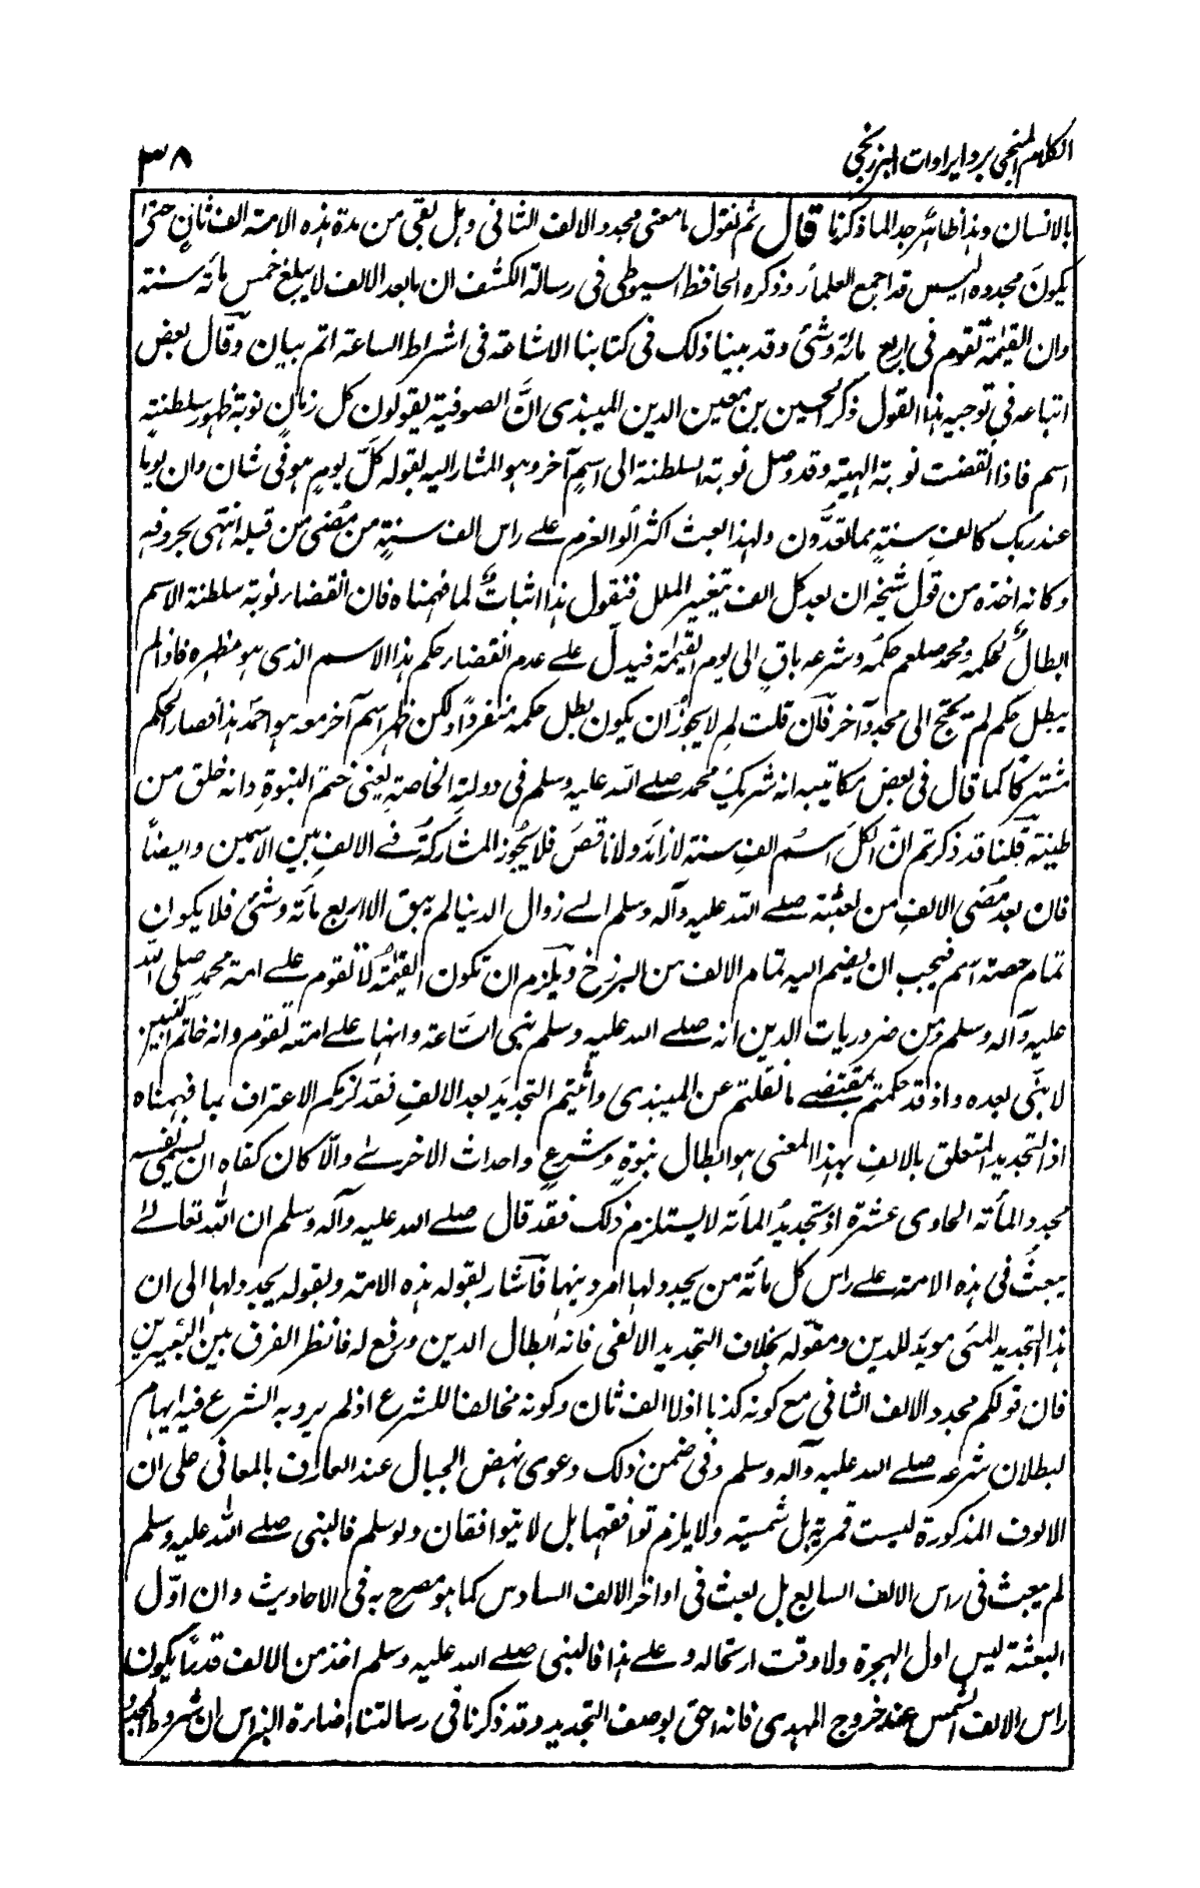 الكلام المنجي برد ايرادات البرزنجي
٣٨
بالانسان وهذا ظاهر جدا لما ذكرنا قال ثم نقول ما معنى مجدد الالف الثاني وهل بقي من مدة هذه الامة الف ثانٍ حتى
يكونَ مجدده اليس قد اجمع العلماء وذكره الحافظ السيوطي في رسالة الكشف ان ما بعد الالف لا يبلغ خمس مائة سنة
وان القيٰمة تقوم في اربع مائة وشئ وقد بينا ذلك في كتابنا الاشاعة في اشراط الساعة اتم بيان وقال بعض
اتباعه في توجيه هذا القول ذكر الحسين بن معين الدين الميبذي انَّ الصوفية يقولون كل زمانٍ نوبة ظهور سلطنة
اسم فاذا انقضت نوبة الهية وقد وصل نوبة السلطنة الى اسمٍ آخر وهو المشار اليه بقوله كلَّ يومٍ هو في شان وان يوما
عند ربك كالفِ سنةٍ مما تعدُّون ولهذا البعث اكثر اُلو العزم علے راس الف سنةٍ من مُضى من قبله انتهى بحروفه
وكانه اخذه من قول شيخه ان بعد كل الف تتغير الملل فنقول هذا اثباتٌ لما فهمناه فان انقضاء نوبة سلطنة الاسم
ابطالٌ لحكمه ومحمد صلعم حكمُه وشرعه باقٍ الى يوم القيٰمة فيدلّ علے عدم انقضاء حكم هذا الاسم الذي هو مظهره فاذا لم
يبطل حكم لم يحتج الى مجددٍ آخر فان قلت لِم لا يجوزُ ان يكون بطل حكمه منفردًا ولكن ظهر اسم آخر معه هو احمَد هذا فصار الحكم
مشتركا كما قال في بعض مكاتيبه انه شريكُ محمد صلے الله عليه وسلم في دولتهِ الخاصةِ يعنى ختم النبوةِ وانه خلق من
طينته قلنا قد ذكرتم انَّ لكلَ اسمٍ الف سنة لا زائدَ ولا ناقصَ فلا يجُوز المشاركةُ فے الالفِ بين الاسمين وايضًا
فان بعد مُضى الالفِ من بعثته صلے الله عليه وآله وسلم الے زوال الدنيا لم يبق الا اربع مائة وشئ فلا يكون
تمام حصة اسم فيجب ان يضم اليه تمام الالف من البرزخ ويلزم ان تكون القيٰمةُ لا تقوم علے امة محمدٍ صلى الله
عليه وآله وسلم ومن ضروريات الدين انه صلے الله عليه وسلم نبى السَّاعة وانها علے امته تقوم وانه خاتم النبيين
لا نبَّى بعده واذ قد حكمتم بمقتضےٰ ما نقلتم عن الميبذي واثبتم التجديدَ بعد الالفِ فقد لزمكم الاعتراف بما فهمناه
اذ التجديد المتعلق بالالفِ بهذا المعنى هو ابطال نبوةٍ وشرعٍ واحداث الاخرےٰ والّا كان كفاه ان يسمى نفسه
مجدد المأئة الحادي عشرة اذ تجديدُ المأئة لا يستلزم ذلك فقد قال صلے الله عليه وآله وسلم ان الله تعالےٰ
يبعثُ في هذه الامة علے راس كل مائة من يجدد لها امر دينها فاشار بقوله هذه الامة وبقوله يجدد لها الى ان
هذا التجديد المئى مويد للدين ومقوّ له بخلاف التجديد الالفى فانه ابطال الدين ورفع له فانظر الفرق بين التعبيرين
فان قولكم مجدد الالف الثاني مع كونه كذبا اذ لا الف ثان وكونه مخالفا للشرع اذ لم يرو به الشرع فيه ايهام
لبطلان شرعه صلے الله عليه وآله وسلم وفى ضمن ذلك دعوى نهض الجبال عند العارف بالمعانى على ان
الالوف المذكورة ليست قمرية بل شمسية ولا يلزم توافقهما بل لا يتوافقان ولو سلم فالنبى صلے الله عليه وسلم
لم يبعث في راس الالف السابع بل بعث في اواخر الالف السادس كما هو مصرح به في الاحاديث وان اوّل
البعثة ليس اول الهجرة ولا وقت ارتحاله وعلے هذا فالنبى صلے الله عليه وسلم اخذ من الالف قدرًا يكون
راس الالف الشمس عند خروج المهدي فانه احق بوصف التجديد وقد ذكرنا في رسالتنا اضارة النبراس ان شروط المجدد